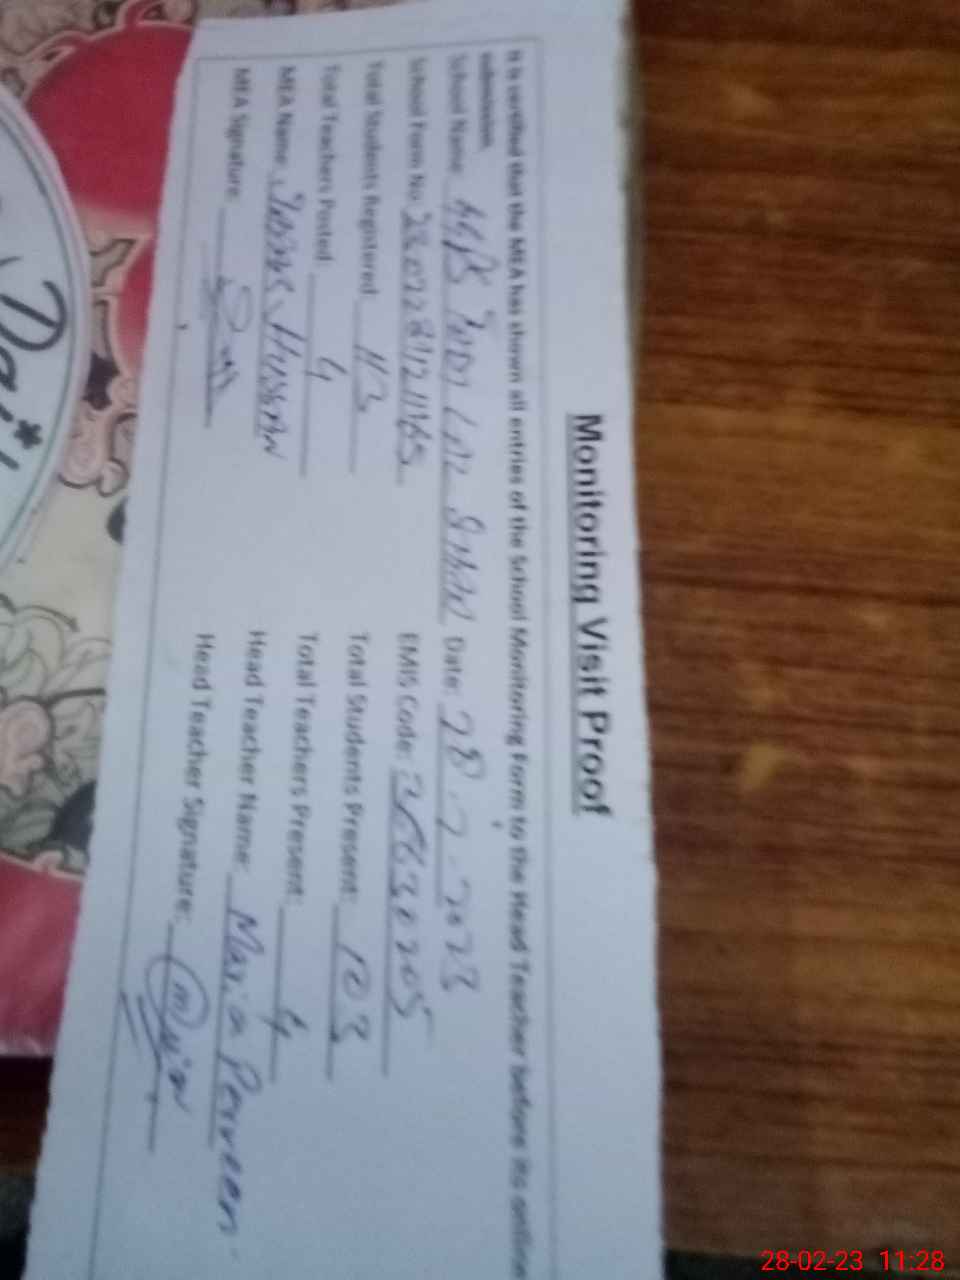 Monitoring Visit Proof
It is verified that the MEA has shown all entries of the School Monitoring Form to the Head Teacher before its online
submission.
School Name: LAL Date: 28-2-2023
School Form No: EMIS Code:
Total Students Registered: 113 Total Students Present: 103
Total Teachers Posted: 4 Total Teachers Present: 4
MEA Name: Hussain Head Teacher Name: Maria Perveen
MEA Signature: Head Teacher Signature:
Dai
28-02-23 11:28